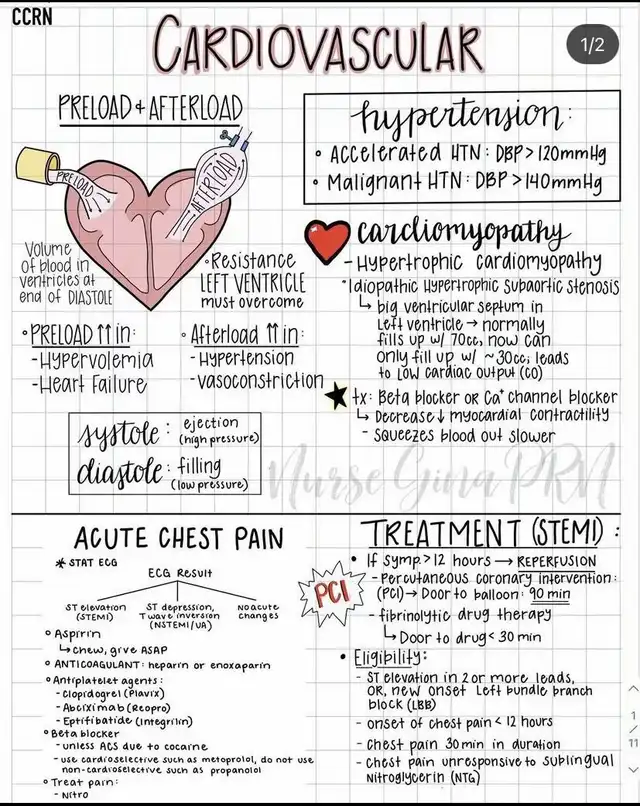 CCRN
CARDIOVASCULAR
1/2
PRELOAD & AFTERLOAD
PRELOAD
AFTERLOAD
Volume
of blood in
ventricles at
end of DIASTOLE
•Resistance
LEFT VENTRICLE
must overcome
•PRELOAD ↑↑ in:
-Hypervolemia
-Heart Failure
•Afterload ↑↑ in:
-Hypertension
-vasoconstriction
systole: ejection
(high pressure)
diastole: filling
(low pressure)
hypertension:
• Accelerated HTN: DBP > 120mmHg
• Malignant HTN: DBP > 140mmHg
cardiomyopathy
- Hypertrophic cardiomyopathy
*Idiopathic Hypertrophic Subaortic Stenosis
↳ big ventricular septum in
left ventricle → normally
fills up w/ 70cc, now can
only fill up w/ ~30cc; leads
to low cardiac output (CO)
★ tx: Beta blocker OR Ca⁺ channel blocker
↳ Decrease ↓ myocardial contractility
- Squeezes blood out slower
Nurse Gina PRN
ACUTE CHEST PAIN
* STAT ECG
ECG Result
ST elevation
(STEMI)
ST depression,
T wave inversion
(NSTEMI/UA)
No acute
changes
• Aspirin
↳ chew, give ASAP
• ANTICOAGULANT: heparin or enoxaparin
• Antiplatelet agents:
- Clopidogrel (Plavix)
- Abciximab (Reopro)
- Eptifibatide (Integrilin)
• Beta blocker
- unless ACS due to cocaine
- use cardioselective such as metoprolol, do not use
non-cardioselective such as propanolol
• Treat pain:
- Nitro
PCI
TREATMENT (STEMI):
• If symp. > 12 hours → REPERFUSION
- Percutaneous coronary intervention:
(PCI) → Door to balloon: 90 min
- fibrinolytic drug therapy
↳ Door to drug < 30 min
• Eligibility:
- ST elevation in 2 or more leads,
OR, new onset left bundle branch
block (LBB)
- onset of chest pain < 12 hours
- Chest pain 30 min in duration
- Chest pain unresponsive to sublingual
Nitroglycerin (NTG)
1
/
11